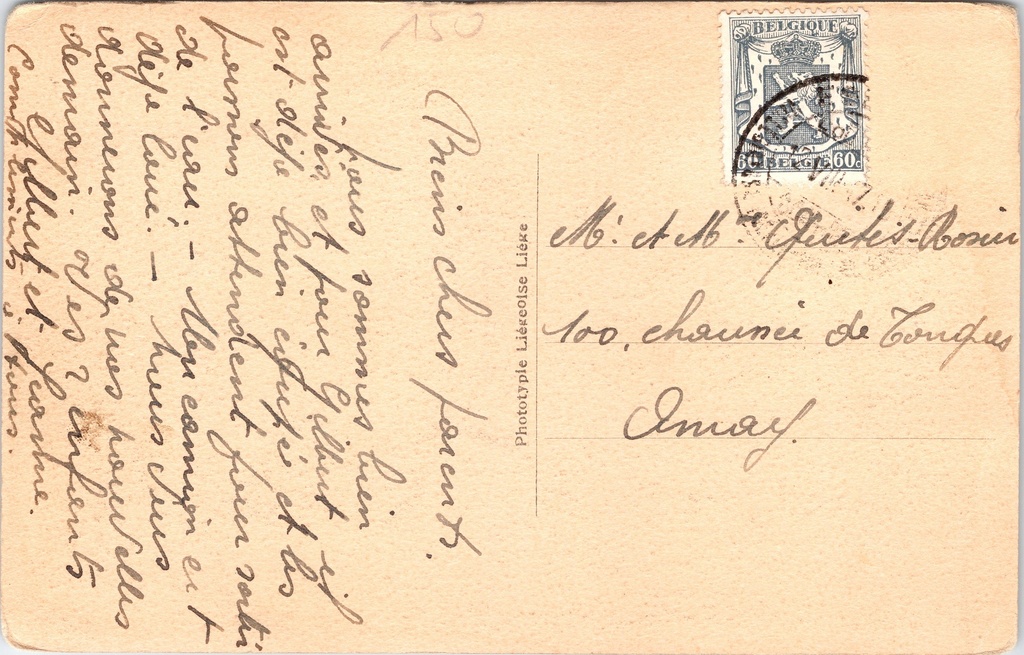 150
Biens chers parents.
Nous sommes bien
arrivés et pour Gilbert il
est déjà bien équipé et les
fourners attendent pour sortir
de l'eau. – Mon camion est
déjà loué. – Nous vous
donnerons de nos nouvelles
demain. Vos 2 enfants
Gilbert et Jeanne.
à tous.
Phototypie Liégeoise Liége
BELGIQUE
60c BELGIË 60c
Mr. et M. Quités-Rosin
100, chaussée de Tongres
Amay.